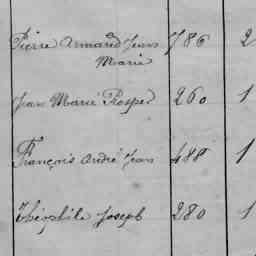 Pierre Armand Jean 786 2
Marie
Jean Marie Prosper 260 1
François André Jean 488 1
Théophile Joseph 280 1